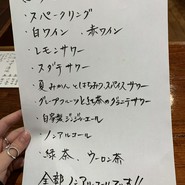 ・スパークリング
・白ワイン 、赤ワイン
・レモンサワー
・スダチサワー
・夏みかんとはちみつスパイスサワー
・グレープフルーツと紅茶のグラニテサワー
・自家製ジンジャエール
・ノンアルコール
・緑茶 ウーロン茶
全部ノンアルコールです!!